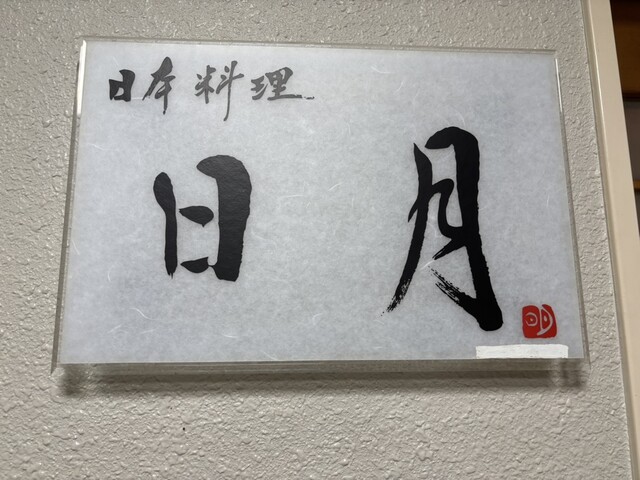 日本料理
日月
明